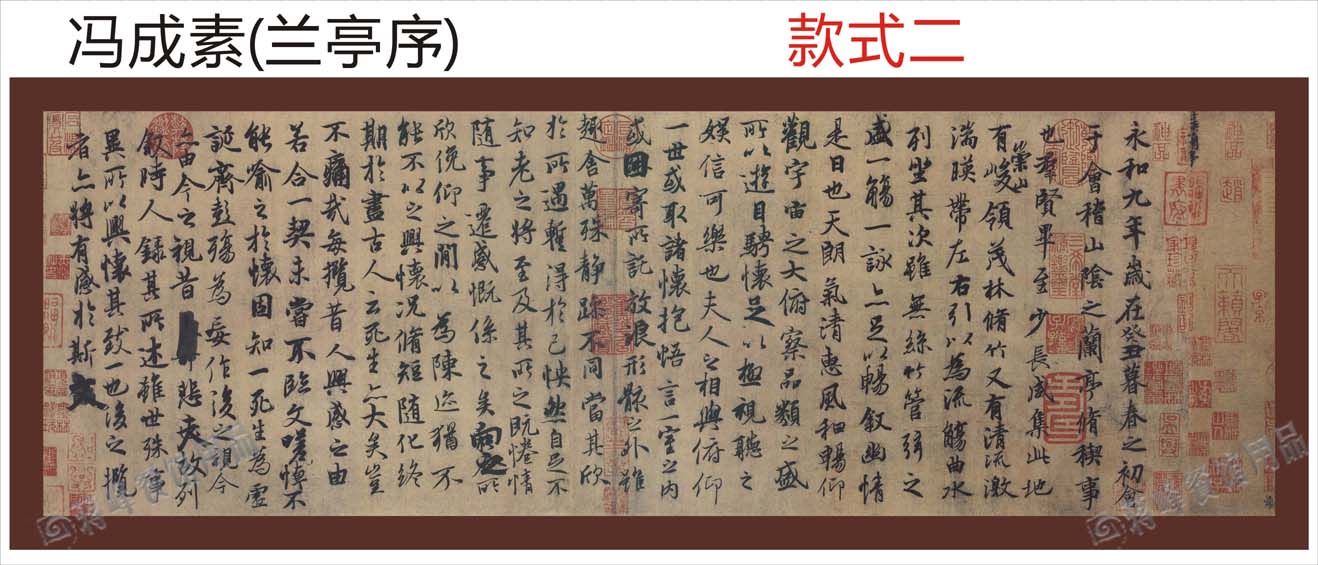 冯成素(兰亭序)
款式二
永和九年歲在癸丑暮春之初會
于會稽山陰之蘭亭脩稧事
也羣賢畢至少長咸集此地
有崇山峻領茂林脩竹又有清流激
湍暎帶左右引以為流觴曲水
列坐其次雖無絲竹管弦之
盛一觴一詠亦足以暢叙幽情
是日也天朗氣清惠風和暢仰
觀宇宙之大俯察品類之盛
所以遊目騁懷足以極視聽之
娛信可樂也夫人之相與俯仰
一世或取諸懷抱悟言一室之內
或因寄所託放浪形骸之外雖
趣舍萬殊静躁不同當其欣
於所遇暫得於己怏然自足不
知老之將至及其所之既惓情
隨事遷感慨係之矣向之所
欣俛仰之閒以為陳迹猶不
能不以之興懷況脩短隨化終
期於盡古人云死生亦大矣豈
不痛哉每攬昔人興感之由
若合一契未嘗不臨文嗟悼不
能喻之於懷固知一死生為虛
誕齊彭殤為妄作後之視今
亦由今之視昔悲夫故列
叙時人錄其所述雖世殊事
異所以興懷其致一也後之攬
者亦將有感於斯文
蒋峰餐馆用品